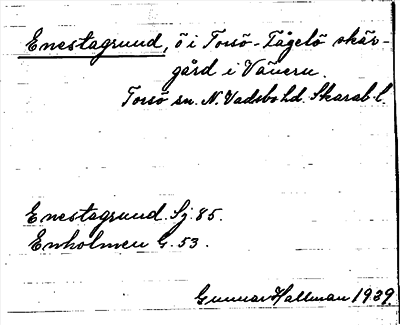 Enestagrund, ö i Torsö-Fågelö skär-
gård i Vänern.
Torsö sn. N. Vadsbo hd. Skarab. l.
Enestagrund. Sj. 85.
Enholmen G. 53.
Gunnar Hallman 1929